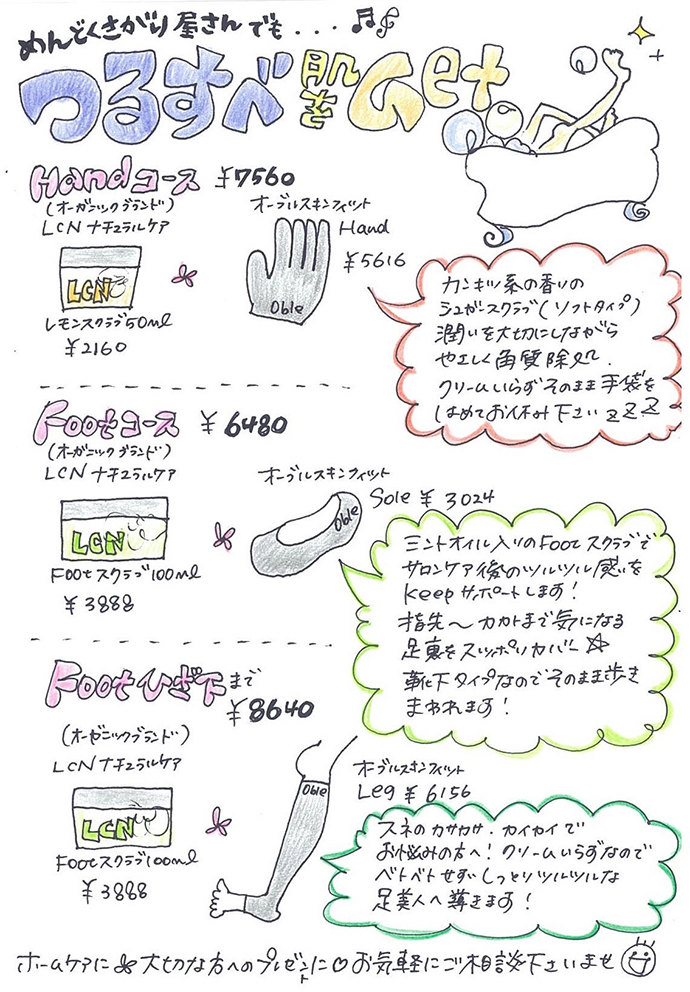 めんどくさがり屋さんでも...♫
つるすべ肌をGet
Handコース ¥7560
(オーガニックブランド)
LCN ナチュラルケア
LCN
レモンスクラブ50ml
¥2160
オーブルスキンフィット
Hand
¥5616
Oble
カンキツ系の香りの
シュガースクラブ(ソフトタイプ)
潤いを大切にしながら
やさしく角質除処.
クリームいらずそのまま手袋を
はめてお休み下さい zzz
Footコース ¥6480
(オーガニックブランド)
LCN ナチュラルケア
LCN
Footスクラブ100ml
¥3888
オーブルスキンフィット
Sole ¥3024
Oble
ミントオイル入りのFootスクラブで
サロンケア後のツルツル感を
keepサポートします!
指先〜カカトまで気になる
足裏をスッポリカバー☆
靴下タイプなのでそのまま歩き
まわれます!
Footひざ下まで
¥8640
(オーガニックブランド)
LCN ナチュラルケア
LCN
Footスクラブ100ml
¥3888
Oble
オーブルスキンフィット
Leg ¥6156
スネのカサカサ・カイカイで
お悩みの方へ!クリームいらずなので
ベトベトせずしっとりツルツルな
足美人へ導きます!
ホームケアに 大切な方へのプレゼントに♡お気軽にご相談下さいませ